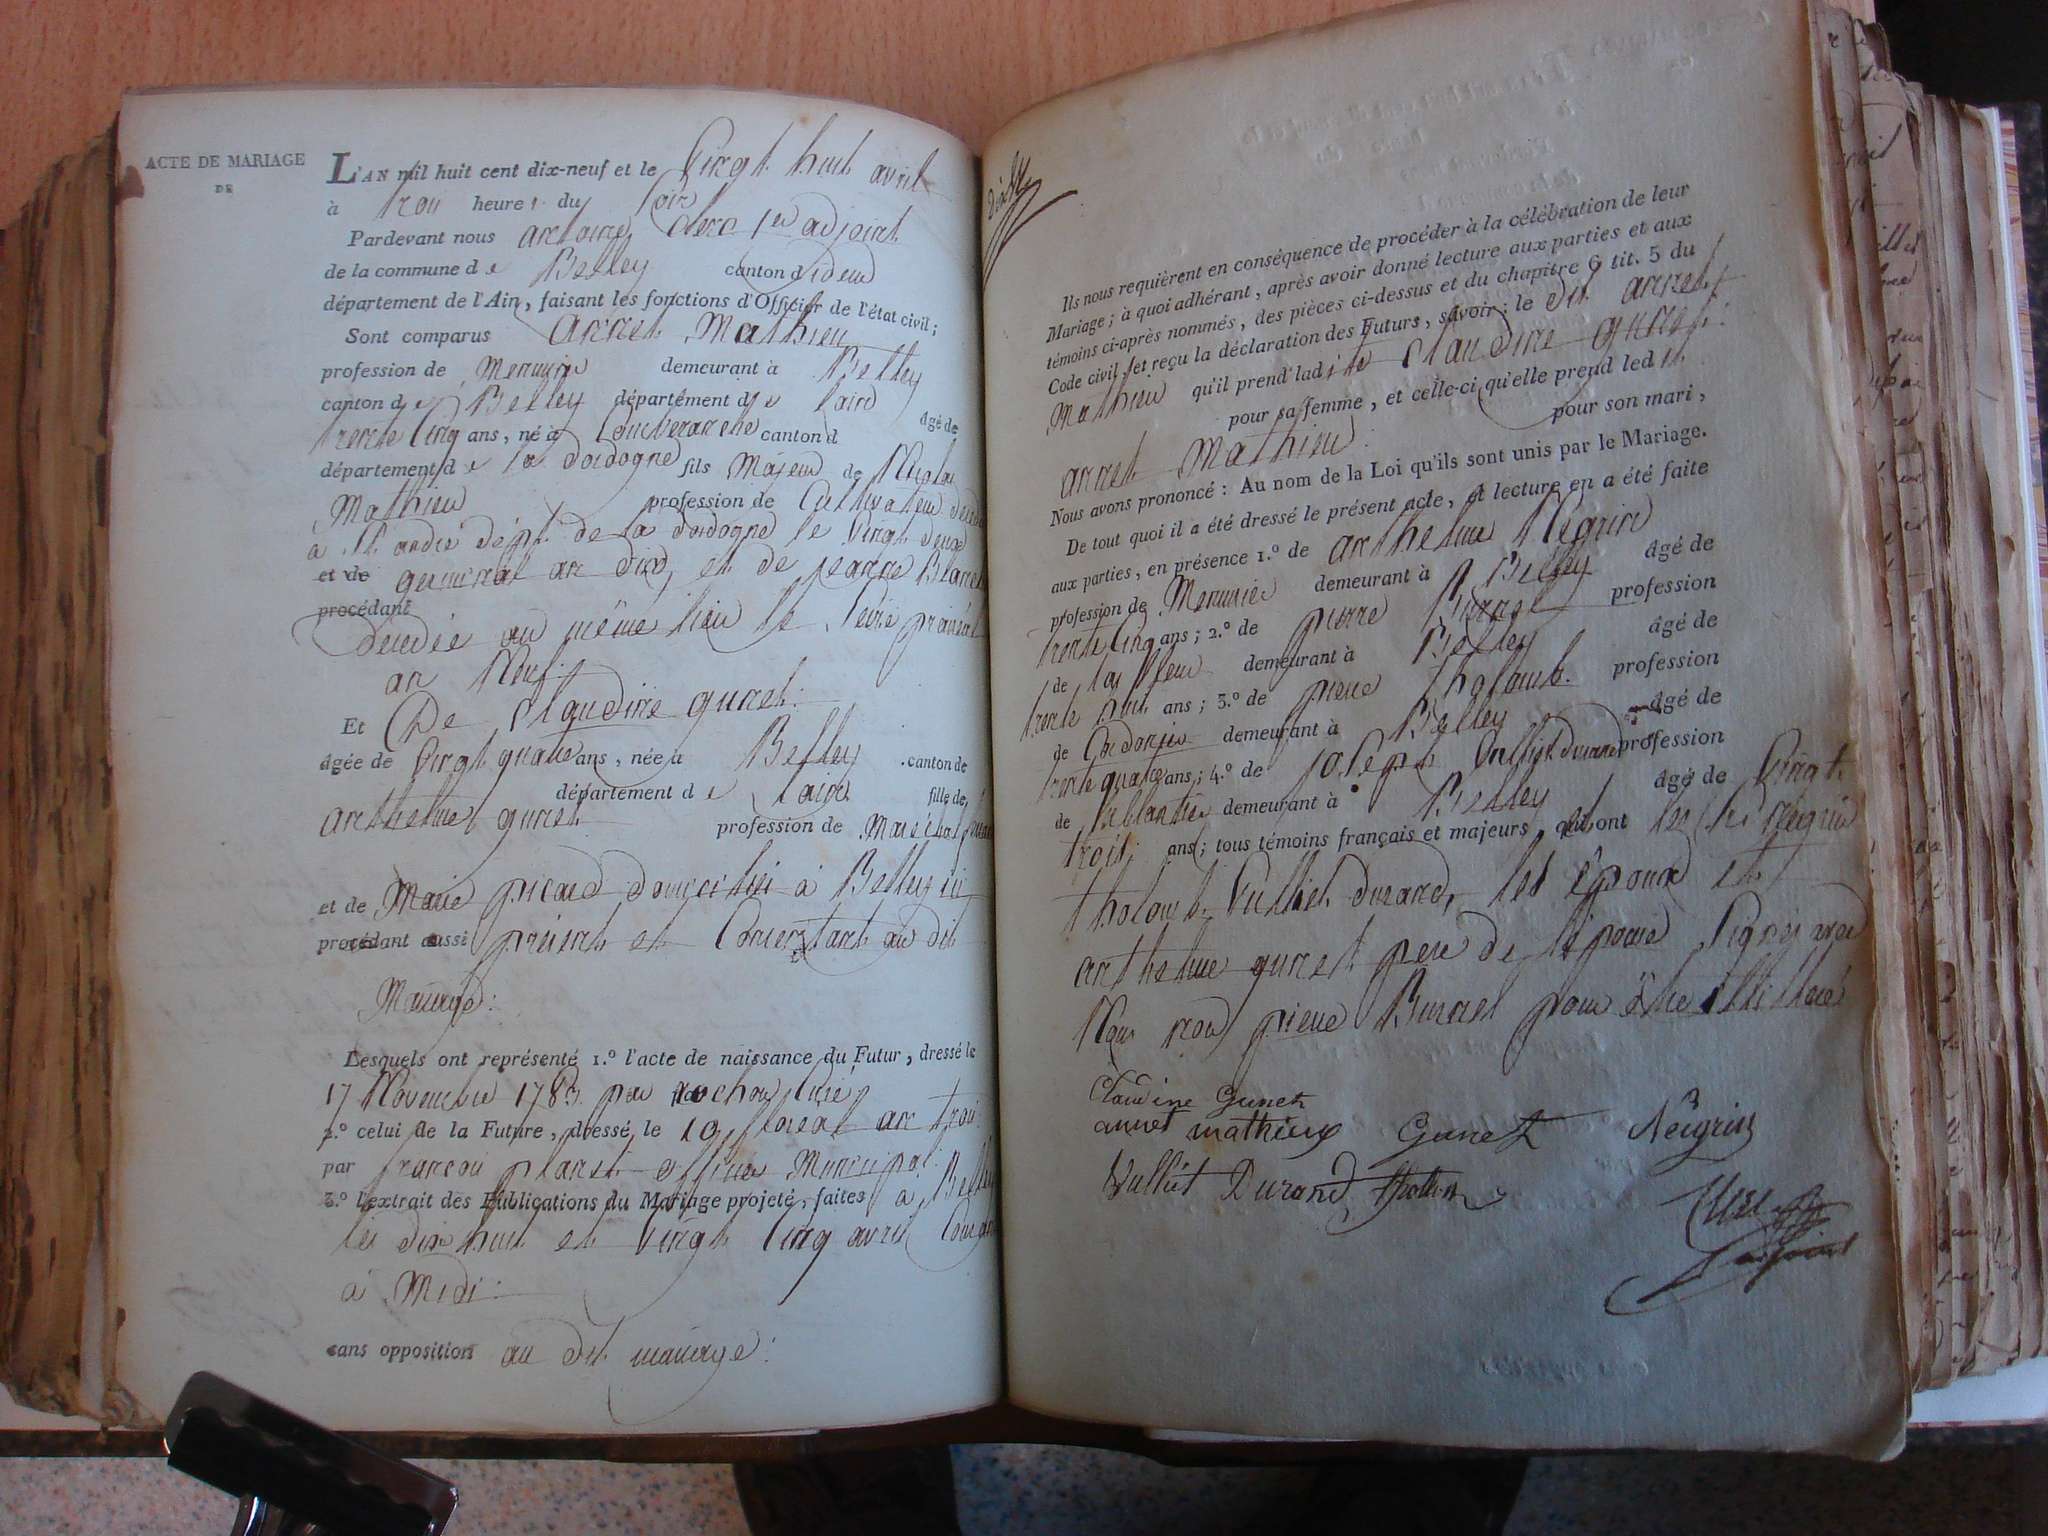 ACTE DE MARIAGE
DE
L'AN mil huit cent dix-neuf et le Vingt huit avril
à trois heures du soir
Pardevant nous antoine Clerc 1er adjoint
de la commune de Belley canton d idem
département de l'Ain, faisant les fonctions d'Officier de l'état civil;
Sont comparus annet Mathieu
profession de Menuisier demeurant à Belley
canton de Belley département de l'ain âgé de
trente Cinq ans, né à canton d
département de la dordogne fils Majeur de Nicolas
Mathieu profession de Cultivateur décédé
à St andré dépt. de la dordogne le Vingt deux
et de germinal an dix, et de jeanne
procédant
décédée au même lieu le prairial
an Neuf.
Et De Claudine gunet.
âgée de Vingt quatre ans, née à Belley canton de
département de l'ain fille de
anthelme gunet profession de Maréchal
et de Marie picard domiciliés à Belley ici
procédant aussi présents et Consentants au dit
Mariage:
Lesquels ont représenté 1.º l'acte de naissance du Futur, dressé le
17 Novembre 1783 par
2.º celui de la Future, dressé le 19 floréal an trois
par françois planet officier Municipal.
3.º l'extrait des Publications du Mariage projeté, faites à Belley
les dix huit et Vingt Cinq avril Courant
à Midi.
sans opposition au dit mariage:
Ils nous requièrent en conséquence de procéder à la célébration de leur
Mariage; à quoi adhérant, après avoir donné lecture aux parties et aux
témoins ci-après nommés, des pièces ci-dessus et du chapitre 6 tit. 5 du
Code civil, et reçu la déclaration des Futurs, savoir: le dit annet
Mathieu qu'il prend ladite Claudine gunet.
pour sa femme, et celle-ci qu'elle prend ledit
annet Mathieu. pour son mari,
Nous avons prononcé: Au nom de la Loi qu'ils sont unis par le Mariage.
De tout quoi il a été dressé le présent acte, et lecture en a été faite
aux parties, en présence 1.º de anthelme Négrin
profession de Menuisier demeurant à Belley âgé de
trente Cinq ans; 2.º de pierre Burnet profession
de tailleur demeurant à Belley âgé de
trente huit ans; 3.º de pierre tholomb. profession
de Cordonnier demeurant à Belley âgé de
trente quatre ans; 4.º de joseph Vulliet durand profession
de ferblantier demeurant à Belley âgé de Vingt
trois ans; tous témoins français et majeurs, qui ont les Srs Négrin
tholomb. Vulliet durand, les époux et
anthelme gunet père de l'épouse Signés avec
Nous non pierre Burnet pour être illitéré
Claudine Gunet
annet mathieu Gunet Nèugrin
Vulliet Durand